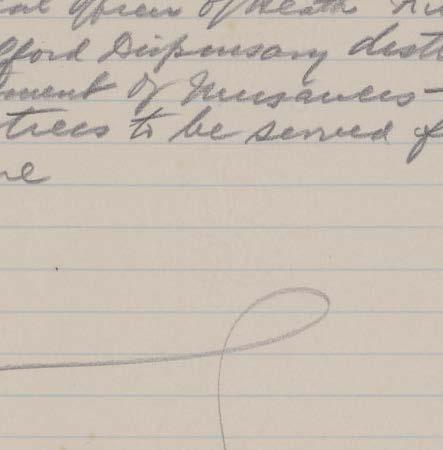 Officer of Heath
fford Dispensary dist
ment of Nuisances—
to be served